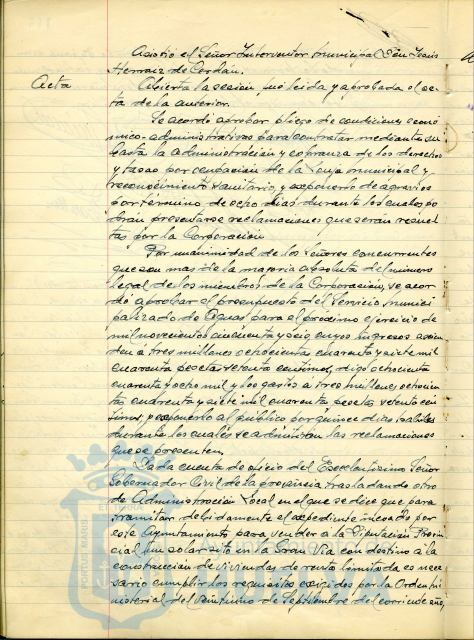 Asistió el Señor Interventor municipal Don Jesús
Herranz de Cerdán.
Acta
Abierta la sesión fué leída y aprobada el ac-
ta de la anterior.
Se acordó aprobar pliego de condiciones econó-
mico-administrativas para contratar mediante su-
basta la administración y cobranza de los derechos
y tasas por ocupación de la Lonja municipal y
reconocimiento sanitario, y exponerlo de agravios
por término de ocho días durante los cuales po-
drán presentarse reclamaciones que serán resuel-
tas por la Corporación.
Por unanimidad de los Señores concurrentes
que son más de la mayoría absoluta del número
legal de los miembros de la Corporación, se acor-
dó aprobar el presupuesto del Servicio munici-
palizado de Aguas para el próximo ejercicio de
mil novecientos cincuenta y seis, cuyos ingresos ascien-
den á tres millones ochocientas cuarenta y siete mil
cuarenta pesetas setenta centimos, digo ochocientas
cuarenta y ocho mil y los gastos á tres millones, ochocien-
tas cuarenta y siete mil cuarenta pesetas setenta cen-
timos, y exponerlo al público por quince días habiles
durante los cuales se admitirán las reclamaciones
que se presenten.
Dada cuenta de oficio del Excelentísimo Señor
Gobernador Civil de la provincia trasladando otro
de Administración Local en el que se dice que para
tramitar debidamente el expediente incoado por
este Ayuntamiento para vender a la Diputación Provin-
cial un solar sito en la Gran Vía con destino a la
construcción de viviendas de renta limitada es nece-
sario cumplir los requisitos exigidos por la Orden mi-
nisterial del veintiuno de Septiembre del corriente año,